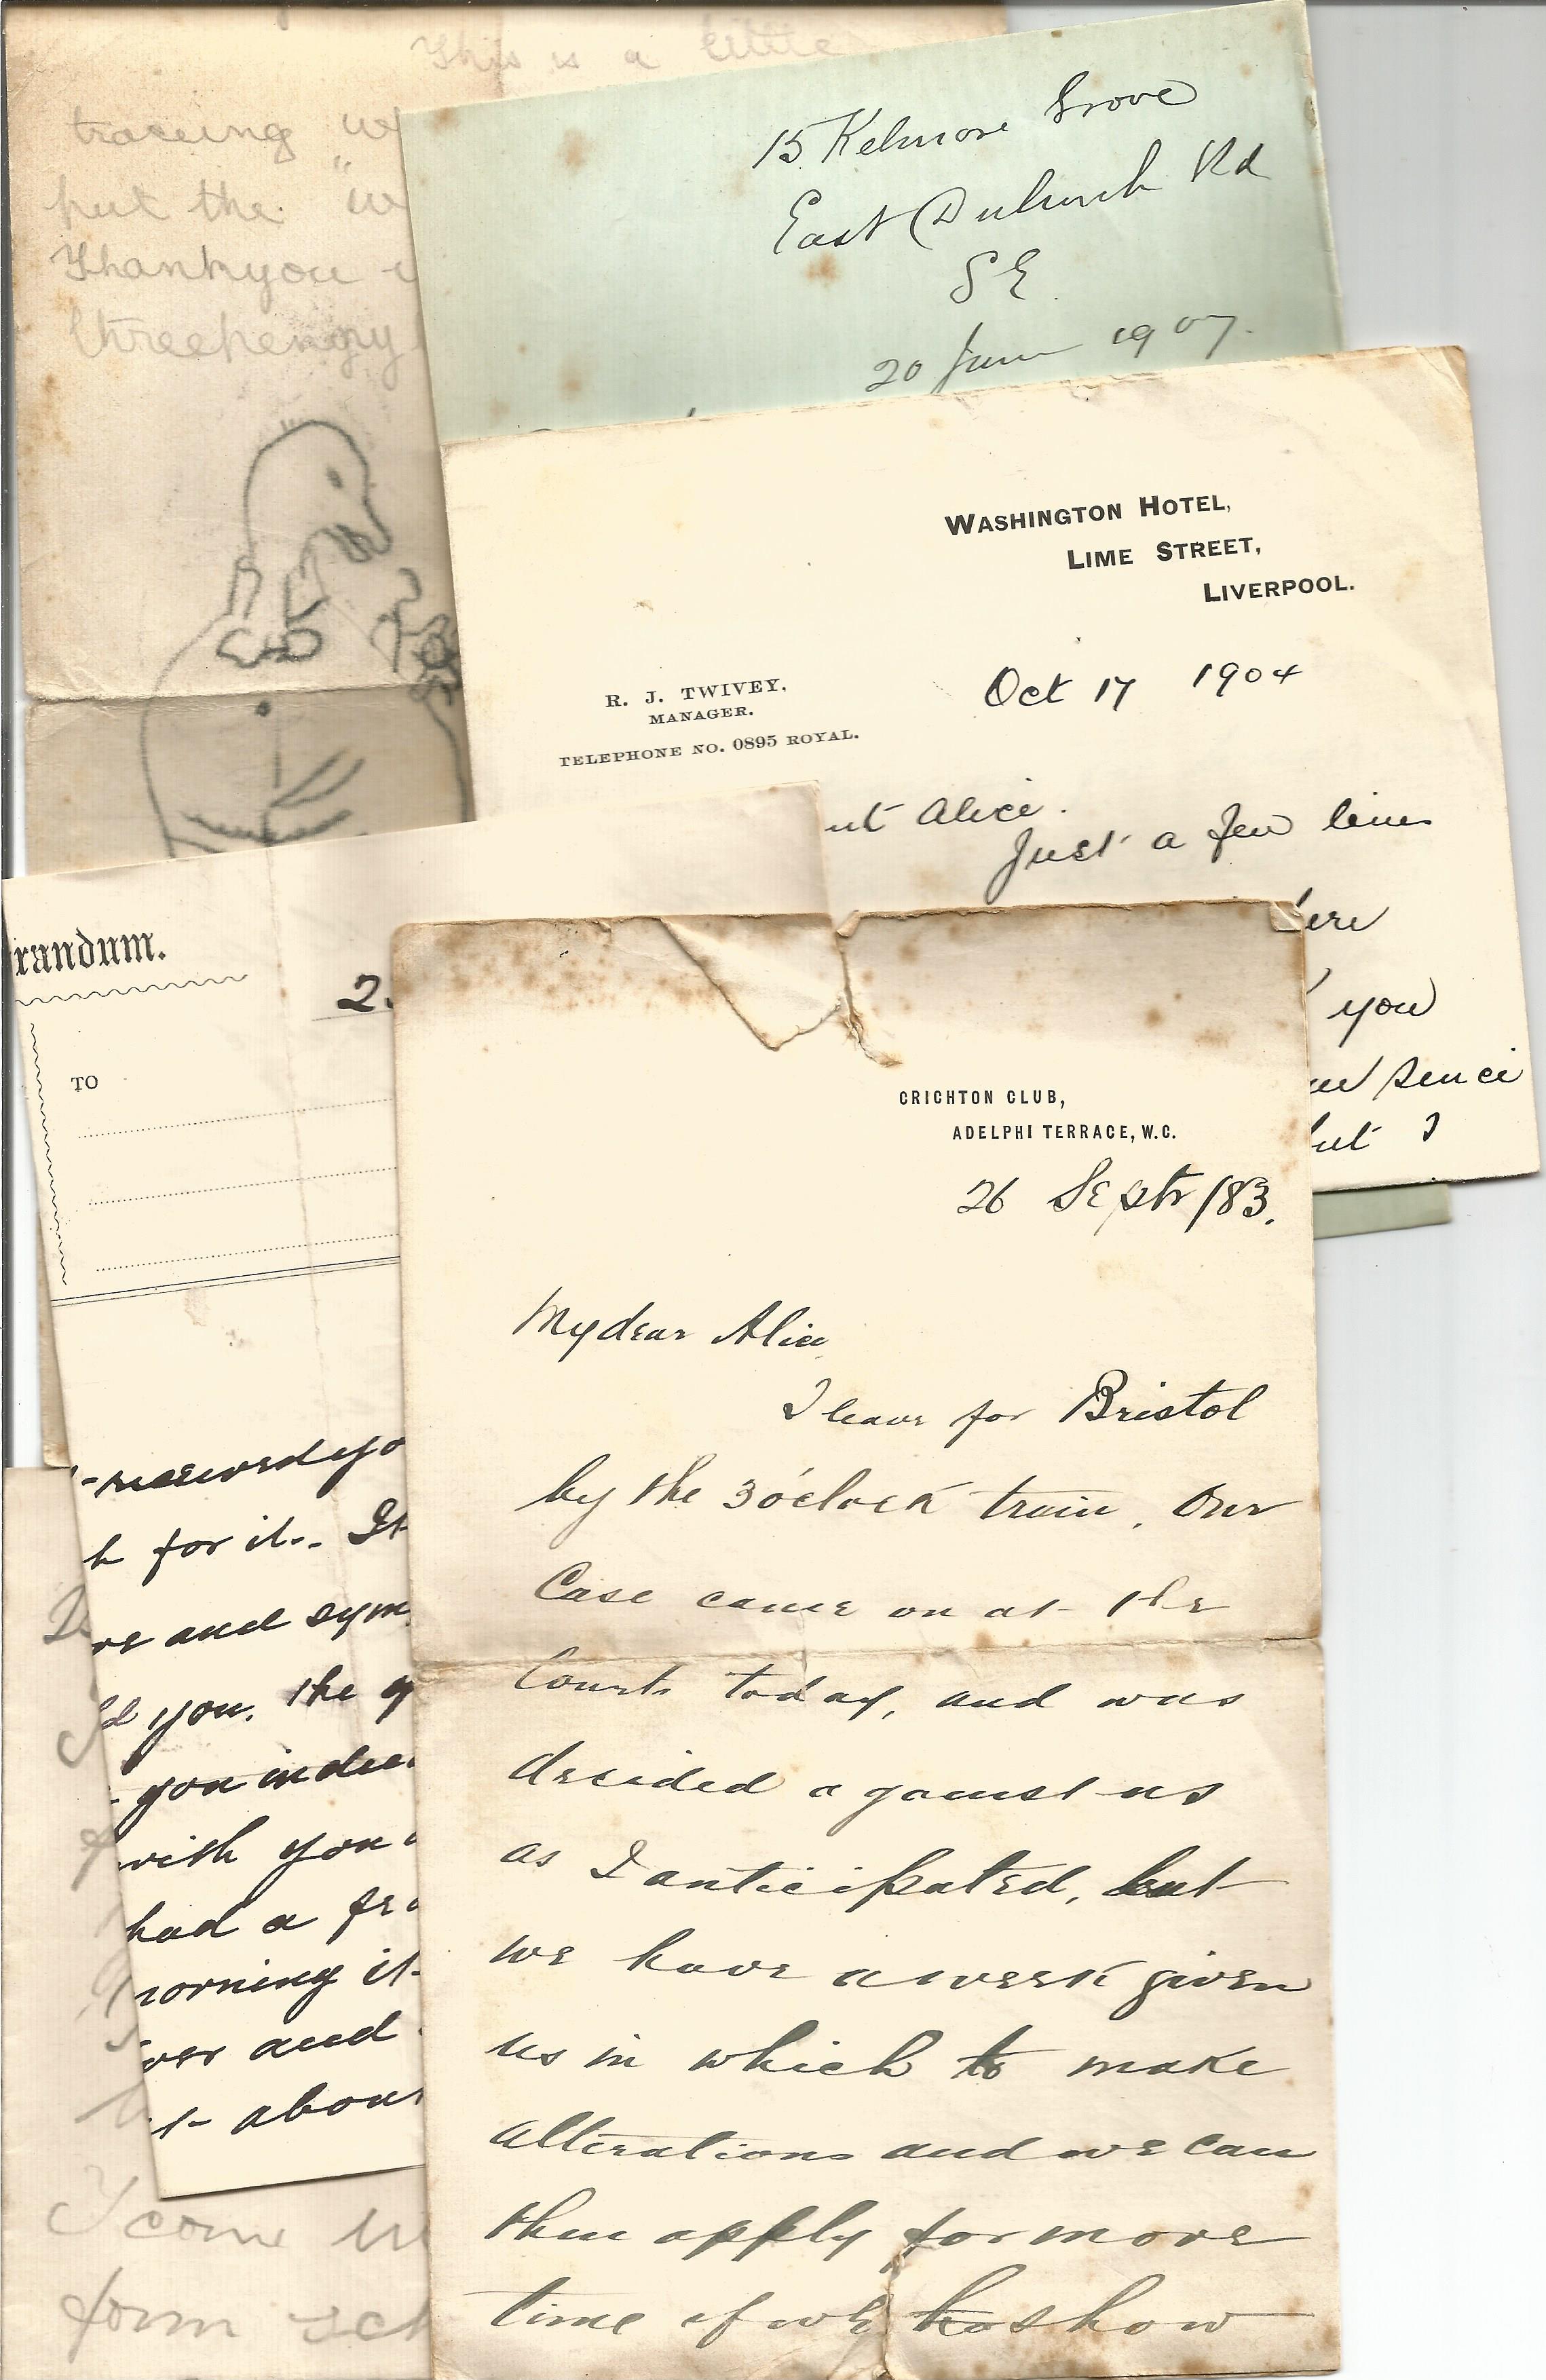 This is a little
tracing
put the "
Thankyou
threepenny
15 Kelmore Grove
East Dulwich Rd
SE
20 June 1907.
WASHINGTON HOTEL,
LIME STREET,
LIVERPOOL.
R. J. TWIVEY,
MANAGER.
TELEPHONE NO. 0895 ROYAL.
Oct 17 1904
nt Alice.
Just a few lines
ere
you
sence
but I
randum.
2.
TO
h for it. It
re and sym
d you. the g
you indee
with you
had a fr
morning it
ver and
t about
I come
form sch
CRICHTON CLUB,
ADELPHI TERRACE, W.C.
26 Septr /83.
My dear Alice
I leave for Bristol
by the 3 o'clock train. Our
Case came on at the
Courts today, and was
decided against us
as I anticipated, but
we have a week given
us in which to make
alterations and we can
then apply for more
time if we show